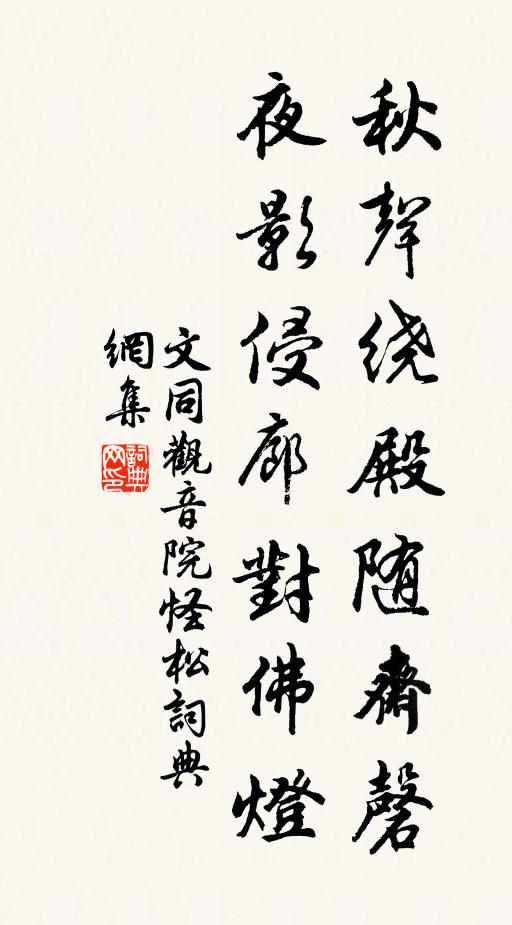 秋聲绕殿随齋磬
夜影侵廊對佛燈
文同觀音院怪松詞典
網集
詞典网印